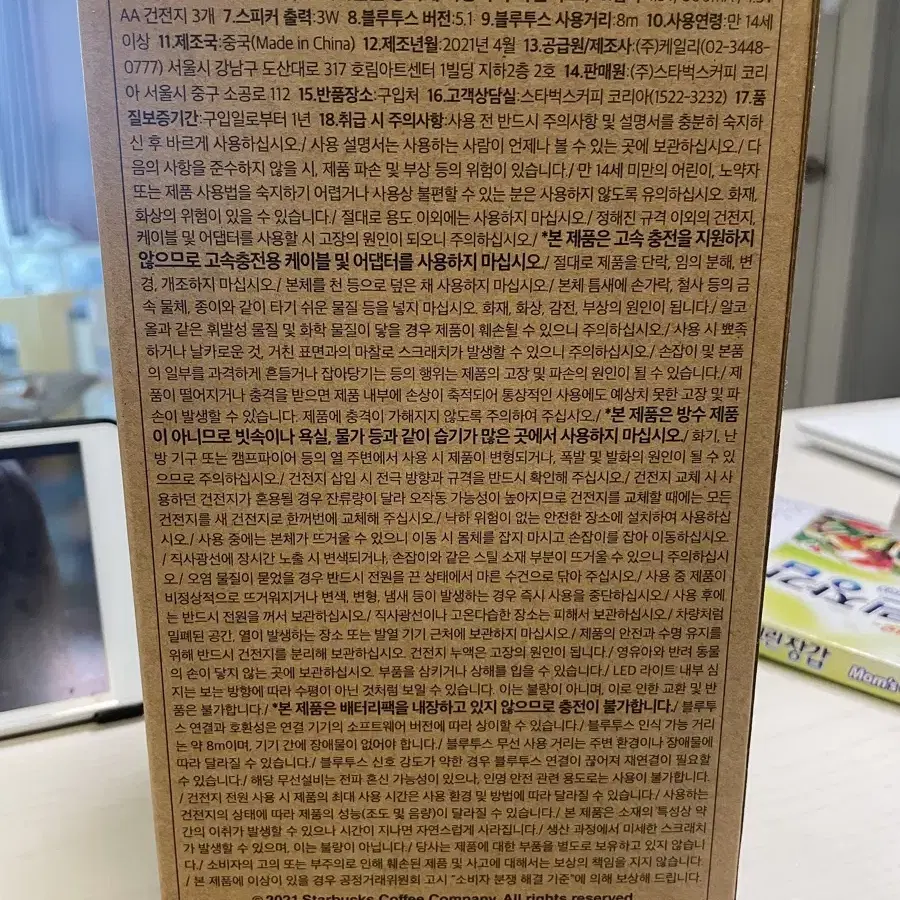 AA 건전지 3개 7.스피커 출력:3W 8.블루투스 버전:5.1 9.블루투스 사용거리:8m 10.사용연령:만 14세
이상 11.제조국:중국(Made in China) 12.제조년월:2021년 4월 13.공급원/제조사:(주)케일리(02-3448-
0777) 서울시 강남구 도산대로 317 호림아트센터 1빌딩 지하2층 2호 14.판매원:(주)스타벅스커피 코리
아 서울시 중구 소공로 112 15.반품장소:구입처 16.고객상담실:스타벅스커피 코리아(1522-3232) 17.품
질보증기간:구입일로부터 1년 18.취급 시 주의사항:사용 전 반드시 주의사항 및 설명서를 충분히 숙지하
신 후 바르게 사용하십시오./ 사용 설명서는 사용하는 사람이 언제나 볼 수 있는 곳에 보관하십시오./ 다
음의 사항을 준수하지 않을 시, 제품 파손 및 부상 등의 위험이 있습니다./ 만 14세 미만의 어린이, 노약자
또는 제품 사용법을 숙지하기 어렵거나 사용상 불편할 수 있는 분은 사용하지 않도록 유의하십시오. 화재,
화상의 위험이 있을 수 있습니다./ 절대로 용도 이외에는 사용하지 마십시오./ 정해진 규격 이외의 건전지,
케이블 및 어댑터를 사용할 시 고장의 원인이 되오니 주의하십시오./ *본 제품은 고속 충전을 지원하지
않으므로 고속충전용 케이블 및 어댑터를 사용하지 마십시오./ 절대로 제품을 단락, 임의 분해, 변
경, 개조하지 마십시오./ 본체를 천 등으로 덮은 채 사용하지 마십시오./ 본체 틈새에 손가락, 철사 등의 금
속 물체, 종이와 같이 타기 쉬운 물질 등을 넣지 마십시오. 화재, 화상, 감전, 부상의 원인이 됩니다./ 알코
올과 같은 휘발성 물질 및 화학 물질이 닿을 경우 제품이 훼손될 수 있으니 주의하십시오./ 사용 시 뾰족
하거나 날카로운 것, 거친 표면과의 마찰로 스크래치가 발생할 수 있으니 주의하십시오./ 손잡이 및 본품
의 일부를 과격하게 흔들거나 잡아당기는 등의 행위는 제품의 고장 및 파손의 원인이 될 수 있습니다./ 제
품이 떨어지거나 충격을 받으면 제품 내부에 손상이 축적되어 통상적인 사용에도 예상치 못한 고장 및 파
손이 발생할 수 있습니다. 제품에 충격이 가해지지 않도록 주의하여 주십시오./ *본 제품은 방수 제품
이 아니므로 빗속이나 욕실, 물가 등과 같이 습기가 많은 곳에서 사용하지 마십시오./ 화기, 난
방 기구 또는 캠프파이어 등의 열 주변에서 사용 시 제품이 변형되거나, 폭발 및 발화의 원인이 될 수 있
으므로 주의하십시오./ 건전지 삽입 시 전극 방향과 규격을 반드시 확인해 주십시오./ 건전지 교체 시 사
용하던 건전지가 혼용될 경우 잔류량이 달라 오작동 가능성이 높아지므로 건전지를 교체할 때에는 모든
건전지를 새 건전지로 한꺼번에 교체해 주십시오./ 낙하 위험이 없는 안전한 장소에 설치하여 사용하십
시오./ 사용 중에는 본체가 뜨거울 수 있으니 이동 시 몸체를 잡지 마시고 손잡이를 잡아 이동하십시오.
/ 직사광선에 장시간 노출 시 변색되거나, 손잡이와 같은 스틸 소재 부분이 뜨거울 수 있으니 주의하십시
오./ 오염 물질이 묻었을 경우 반드시 전원을 끈 상태에서 마른 수건으로 닦아 주십시오./ 사용 중 제품이
비정상적으로 뜨거워지거나 변색, 변형, 냄새 등이 발생하는 경우 즉시 사용을 중단하십시오./ 사용 후에
는 반드시 전원을 꺼서 보관하십시오./ 직사광선이나 고온다습한 장소는 피해서 보관하십시오./ 차량처럼
밀폐된 공간, 열이 발생하는 장소 또는 발열 기기 근처에 보관하지 마십시오./ 제품의 안전과 수명 유지를
위해 반드시 건전지를 분리해 보관하십시오. 건전지 누액은 고장의 원인이 됩니다./ 영유아와 반려 동물
의 손이 닿지 않는 곳에 보관하십시오. 부품을 삼키거나 상해를 입을 수 있습니다./ LED 라이트 내부 심
지는 보는 방향에 따라 수평이 아닌 것처럼 보일 수 있습니다. 이는 불량이 아니며, 이로 인한 교환 및 반
품은 불가합니다./ *본 제품은 배터리팩을 내장하고 있지 않으므로 충전이 불가합니다./ 블루투
스 연결과 호환성은 연결 기기의 소프트웨어 버전에 따라 상이할 수 있습니다./ 블루투스 인식 가능 거리
는 약 8m이며, 기기 간에 장애물이 없어야 합니다./ 블루투스 무선 사용 거리는 주변 환경이나 장애물에
따라 달라질 수 있습니다./ 블루투스 신호 강도가 약한 경우 블루투스 연결이 끊어져 재연결이 필요할
수 있습니다./ 해당 무선설비는 전파 혼신 가능성이 있으나, 인명 안전 관련 용도로는 사용이 불가합니다.
/ 건전지 전원 사용 시 제품의 최대 사용 시간은 사용 환경 및 방법에 따라 달라질 수 있습니다./ 사용하는
건전지의 상태에 따라 제품의 성능(조도 및 음량)이 달라질 수 있습니다./ 본 제품은 소재의 특성상 약
간의 이취가 발생할 수 있으나 시간이 지나면 자연스럽게 사라집니다./ 생산 과정에서 미세한 스크래치
가 발생할 수 있으며, 이는 불량이 아닙니다./ 당사는 제품에 대한 부품을 별도로 보유하고 있지 않습니
다./ 소비자의 고의 또는 부주의로 인해 훼손된 제품 및 사고에 대해서는 보상의 책임을 지지 않습니다.
/ 본 제품에 이상이 있을 경우 공정거래위원회 고시 "소비자 분쟁 해결 기준"에 의해 보상해 드립니다.
©2021 Starbucks Coffee Company. All rights reserved.
장갑
Mom's